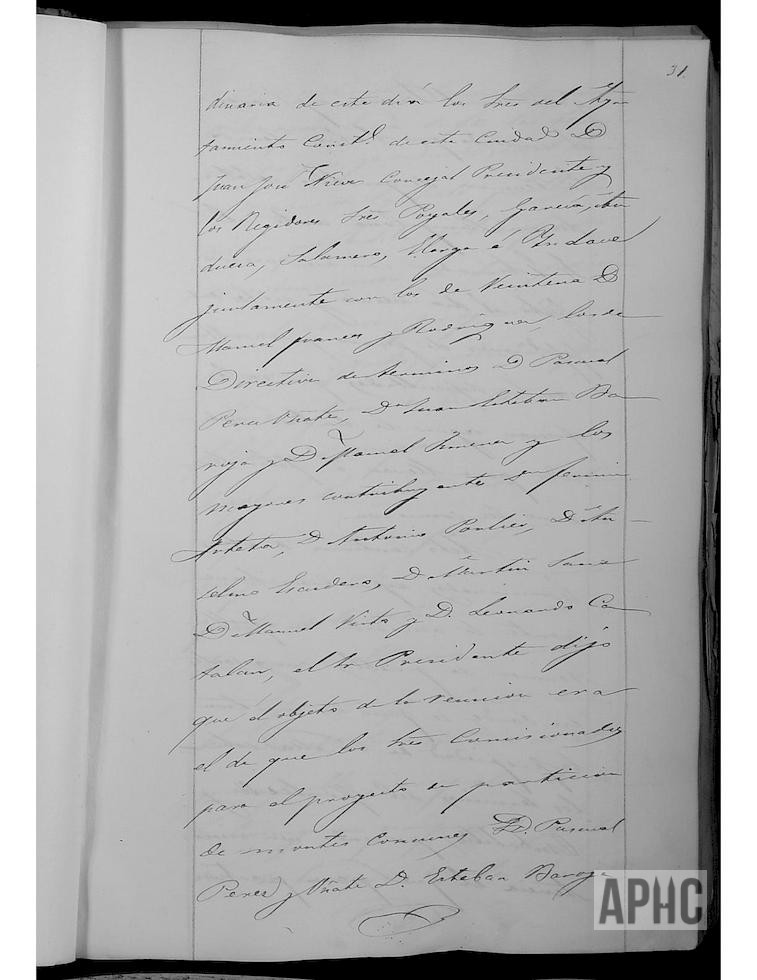 31.
dinaria de este dia los Sres del Ayun
tamiento Constl. de esta Ciudad D
Juan José Nieva Concejal Presidente y
los Regidores Sres Poyales, Garcia,
ducia, Salamero, é
juntamente con los de Veintena D
Manuel y Rodriguez, los de
Directiva de terminos D Pascual
Perez Oñate, Dn Juan Esteban Ba
roja y Dn Manuel Jimenez y los
mayores contribuyentes Dn
Antonio, Dn An
selmo Escudero, Dn Martin Sanz
Dn Manuel y D. Leonardo Ca
talan, el Sr Presidente dijo
que el objeto de la reunion era
el de que los Sres Comisionados
para el proyecto de particion
de montes comunes D. Pascual
Perez y Oñate D. Esteban Baroja
APHC